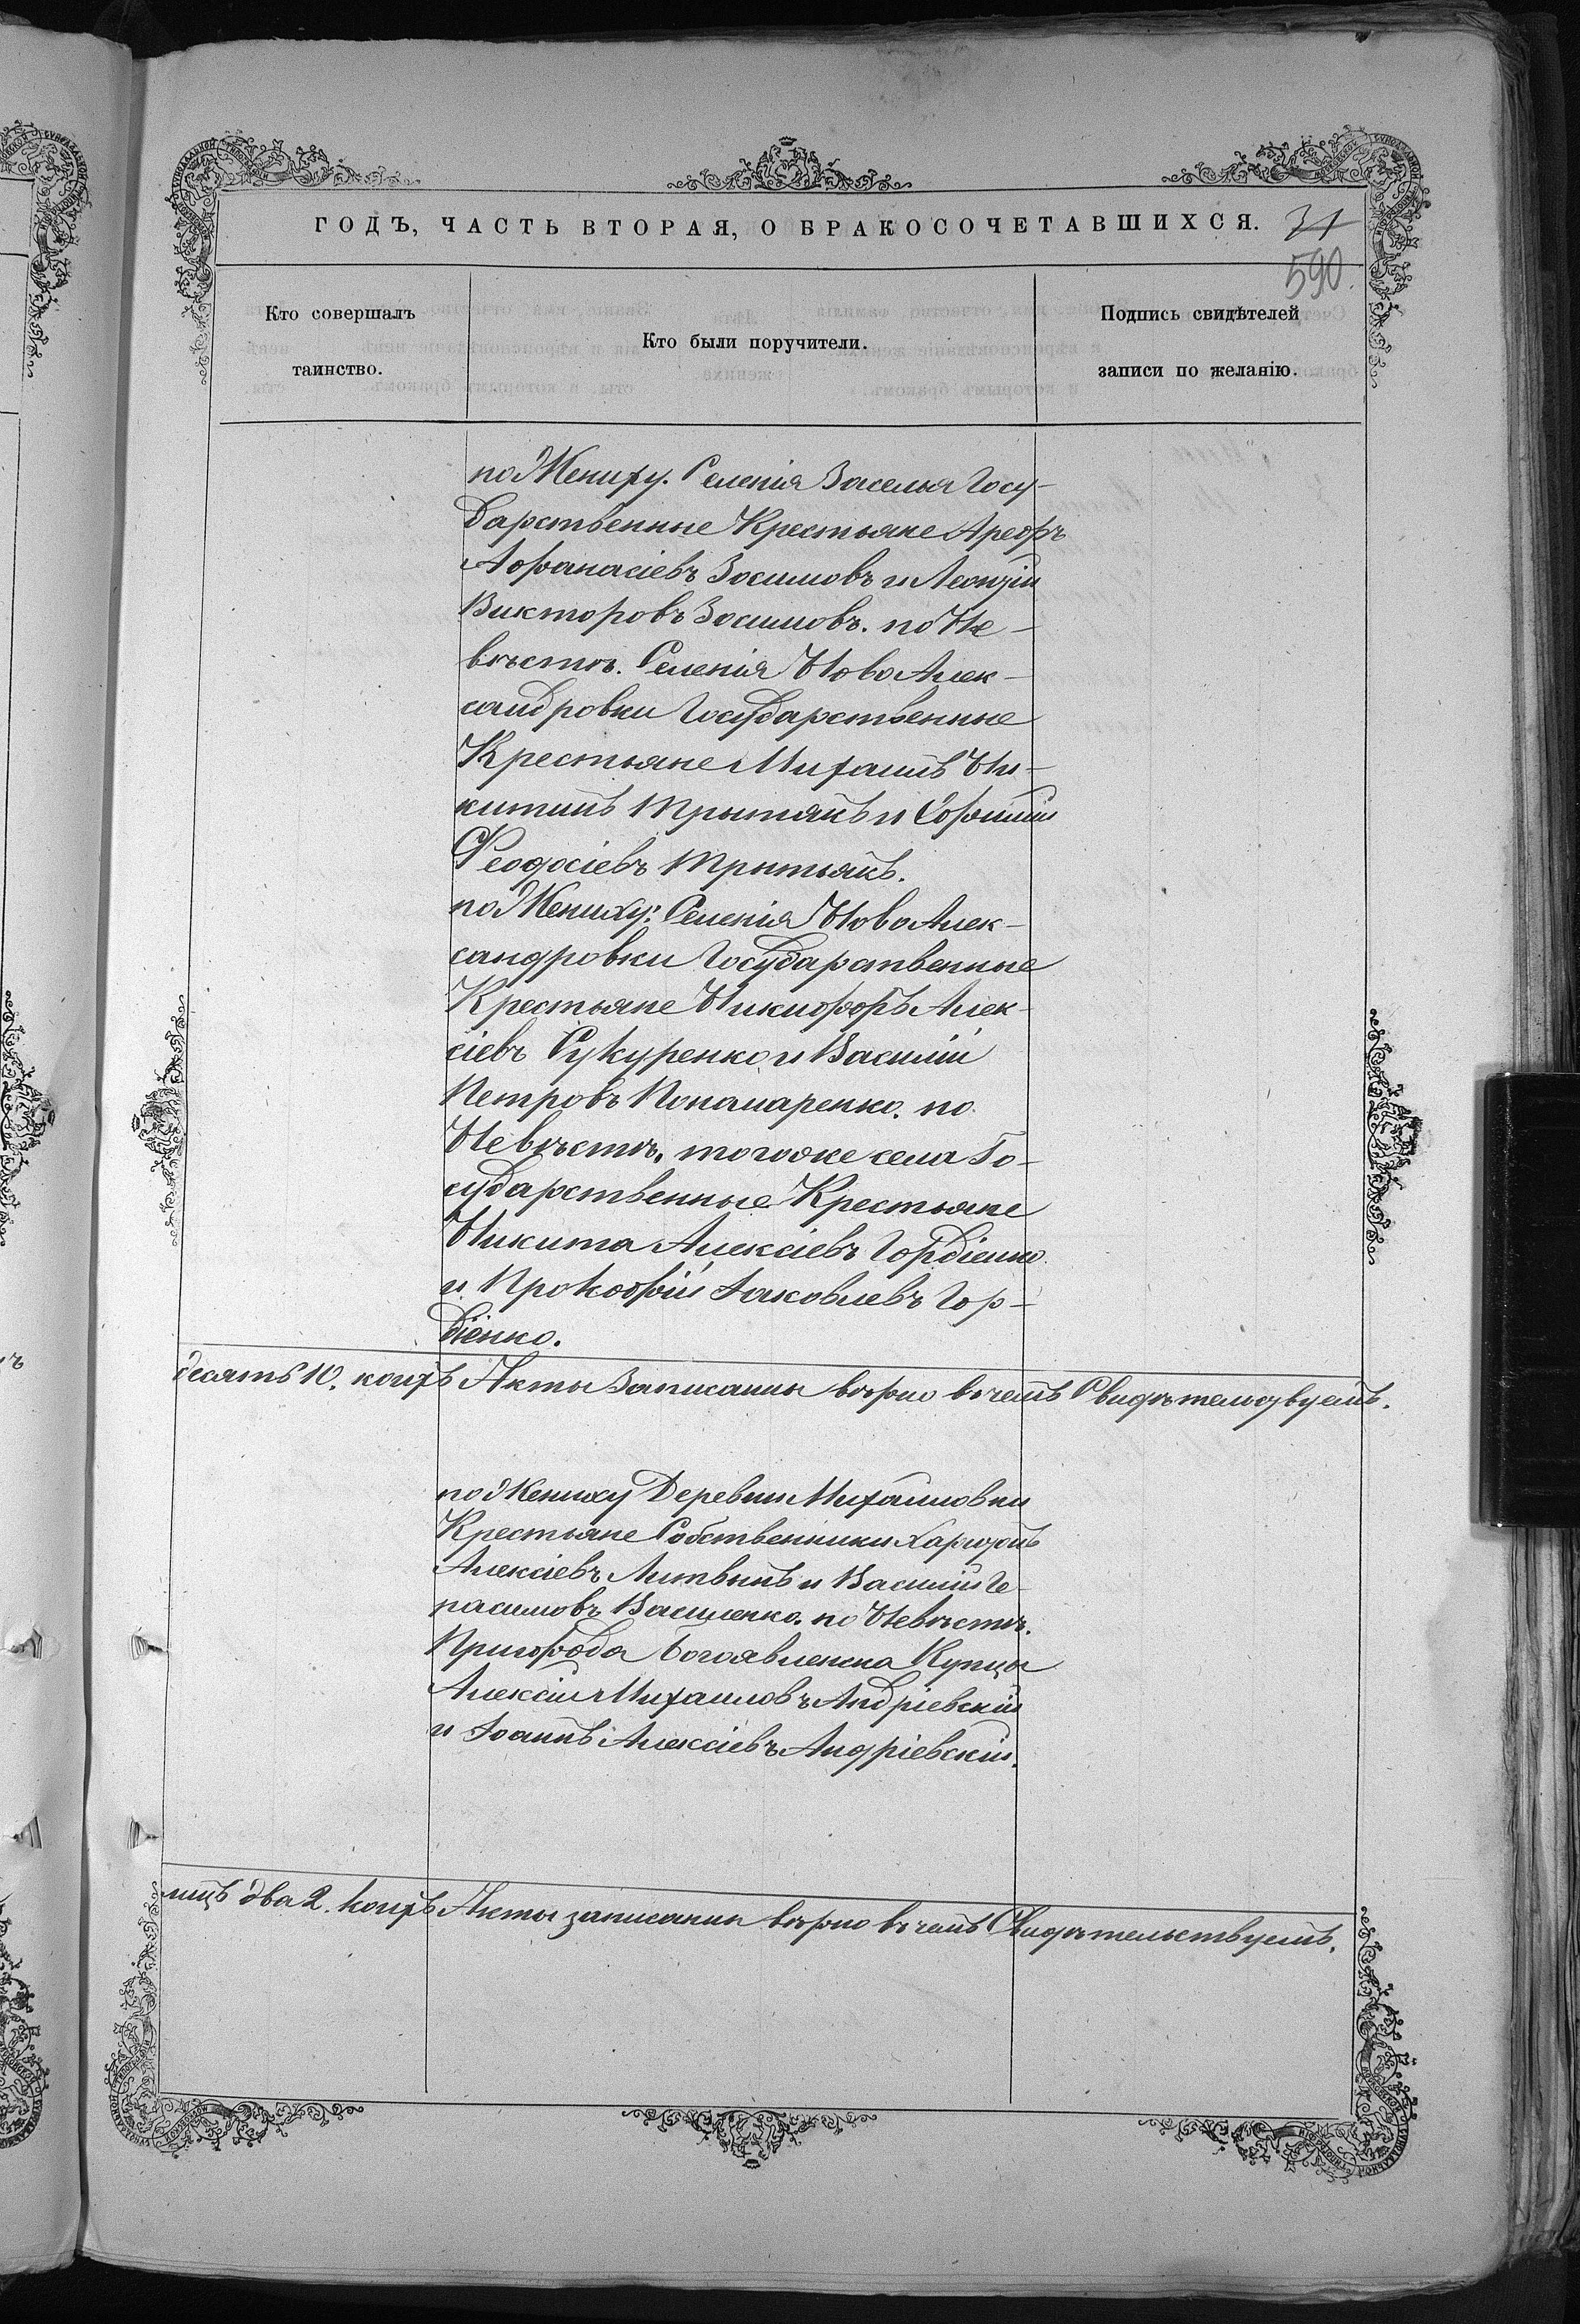 ГОДЪ, ЧАСТЬ ВТОРАЯ, О БРАКОСОЧЕТАВШИХСЯ.
31
590
Кто совершалъ
таинство.
Кто были поручители.
Подпись свидѣтелей
записи по желанію.
по Жениху. Селенія Заселья Госу-
дарственные Крестьяне Ареѳъ
Аѳанасіевъ Зосимовъ и Леонтій
Викторовъ Зосимовъ. по Не-
вѣстѣ. Селенія Ново Алек-
сандровки Государственные
Крестьяне Михаилъ Ни-
китинъ Трытякъ и
Ѳеодосіевъ Трытьякъ.
по Жениху: Селенія Ново Алек-
сандровки Государственные
Крестьяне Никифоръ Алек-
сіевъ Сукуренко и Василій
Петровъ Понамаренко. по
Невѣстѣ. тогоже села Го-
сударственные Крестьяне
Никита Алексіевъ Гордіенко
и Прокофій Іаковлевъ Гор-
діенко.
десять 10. коихъ Акты Записанны вѣрно въ чемъ Свидѣтельствуемъ.
по Жениху Деревни Михайловки
Крестьяне Собственники Харитонъ
Алексіевъ Литвинъ и Василій Ге-
расимовъ Василенко. по Невѣстѣ.
Пригорода Богоявленска Купцы
Алексій Михаиловъ Андріевскій
и Іоаннъ Алексіевъ Андріевскій.
лицъ два 2. коихъ Акты записанны вѣрно въ чемъ Свидѣтельствуемъ.